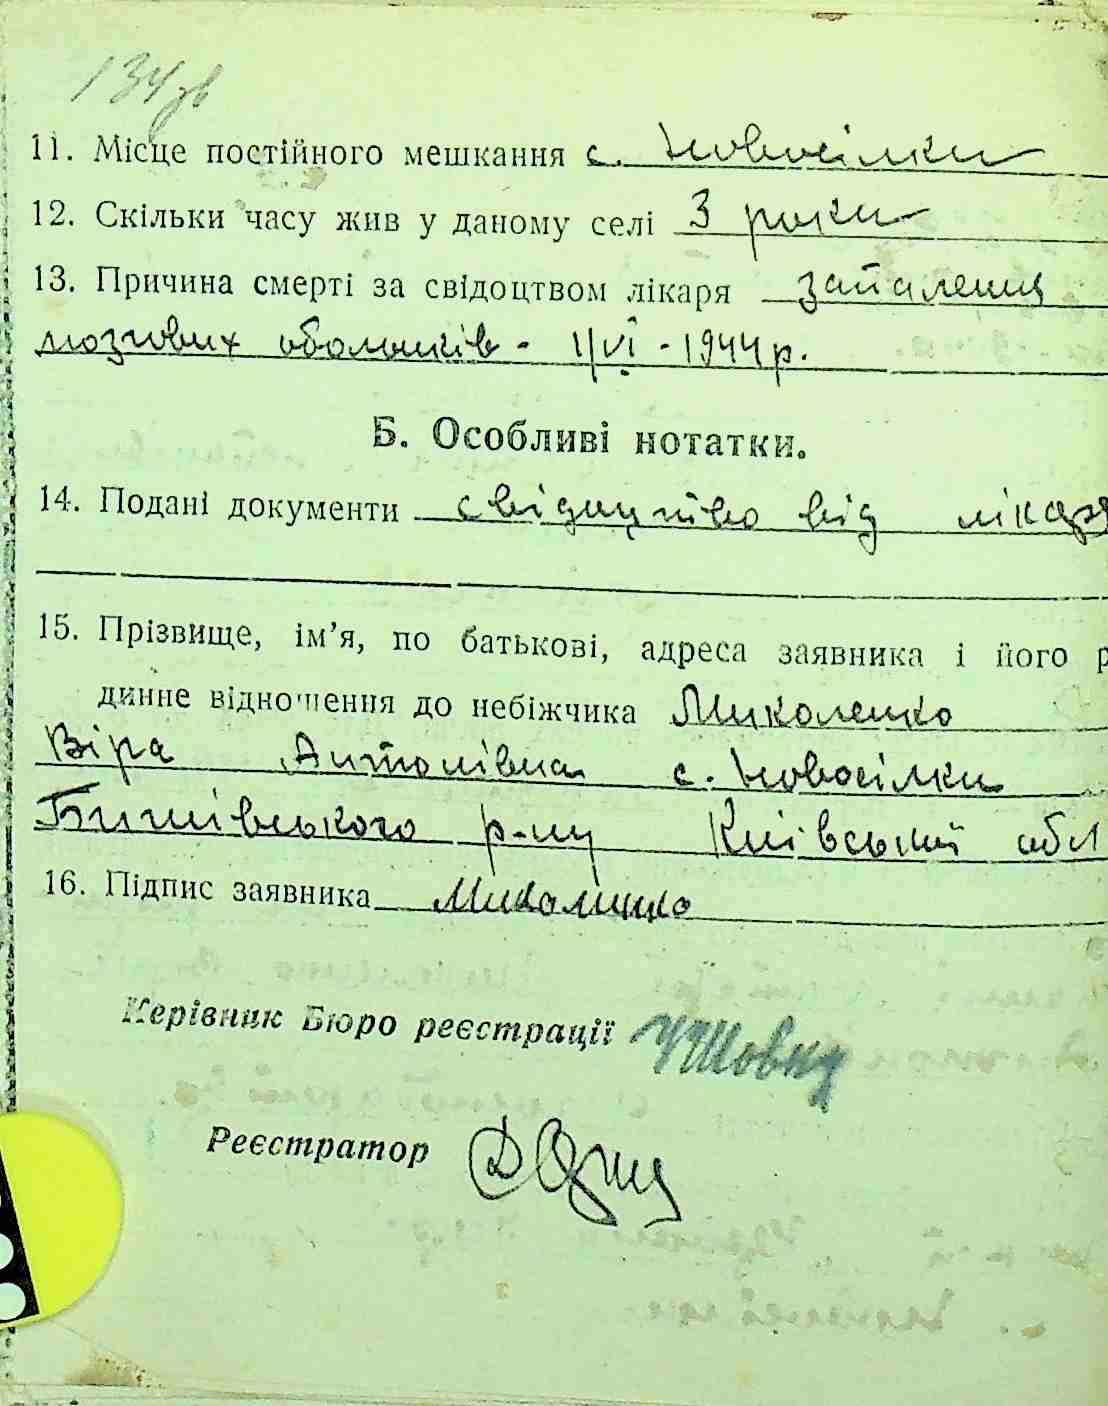 134 зв
11. Місце постійного мешкання с. Новосілки
12. Скільки часу жив у даному селі 3 роки
13. Причина смерті за свідоцтвом лікаря запалення
мозгових оболонків - 1/VI - 1944 р.
Б. Особливі нотатки.
14. Подані документи свідоцтво від лікаря
15. Прізвище, ім'я, по батькові, адреса заявника і його р
динне відношення до небіжчика Миколенко
Віра Антонівна с. Новосілки
Бишівського р-ну Київської обл
16. Підпис заявника Миколенко
Керівник Бюро реєстрації
Реєстратор